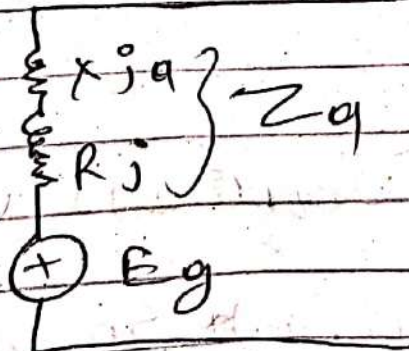 Xjq
Rj
Zq
+ Eg